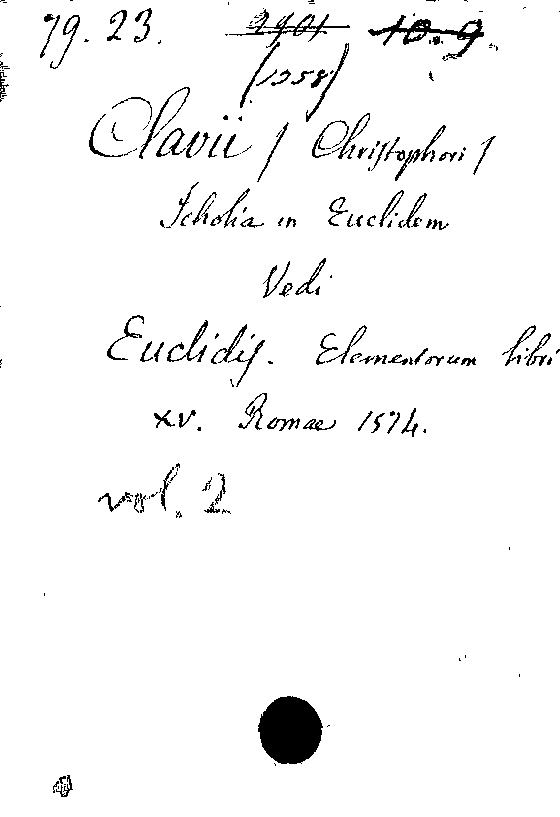 79. 23. 2901 10. 9.
(1258)
Clavii / Christophori /
Scholia in Euclidem
Vedi
Euclidis. Elementorum libri
XV. Romae 1574.
vol. 2